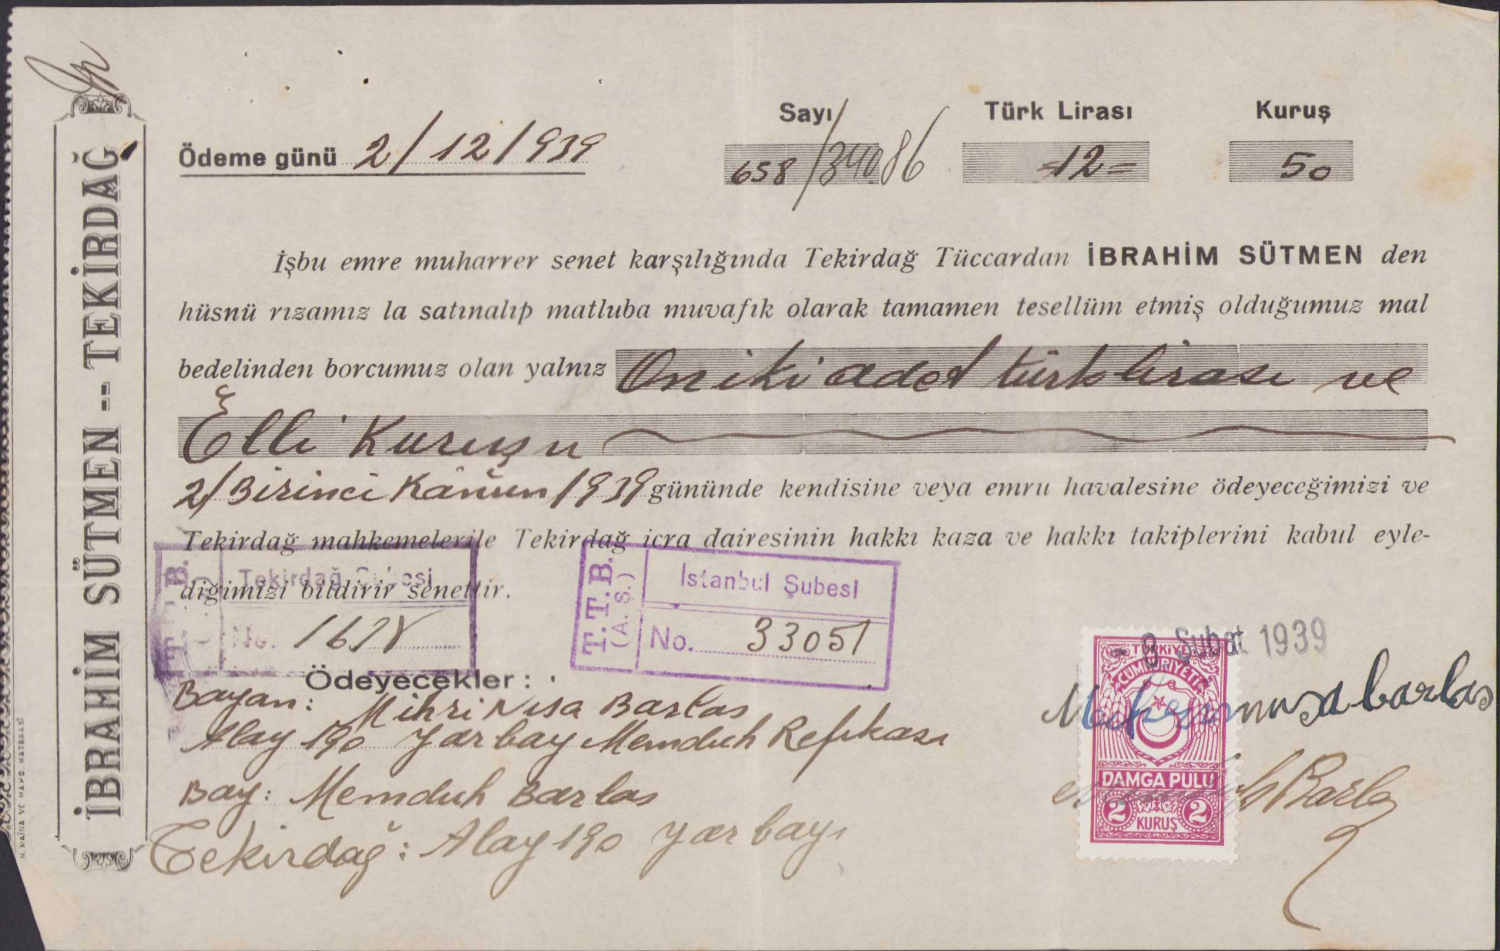 İBRAHİM SÜTMEN -- TEKİRDAĞ
Sayı Türk Lirası Kuruş
Ödeme günü 2/12/939 658/34086 =12= 50
İşbu emre muharrer senet karşılığında Tekirdağ Tüccardan İBRAHİM SÜTMEN den
hüsnü rızamız la satınalıp matluba muvafık olarak tamamen tesellüm etmiş olduğumuz mal
bedelinden borcumuz olan yalnız On iki adet türk lirası ve
Elli Kuruşu
2/Birinci Kânun/1939 gününde kendisine veya emru havalesine ödeyeceğimizi ve
Tekirdağ mahkemelerile Tekirdağ icra dairesinin hakkı kaza ve hakkı takiplerini kabul eyle-
diğimizi bildirir senettir.
T.T.B.
Tekirdağ Şubesi
No.
T.T.B.
(A.Ş.)
İstanbul Şubesi
No. 33051
- 3 Şubat 1939
Ödeyecekler:
Bayan: Mihri Nisa Barlas
Alay 190 Yarbay Memduh Refikası
Bay: Memduh Barlas
Tekirdağ: Alay 190 Yarbayı
TÜRKİYE
CUMHURİYETİ
DAMGA PULU
2 KURUŞ 2
Mihrinnisa barlas
Barlas